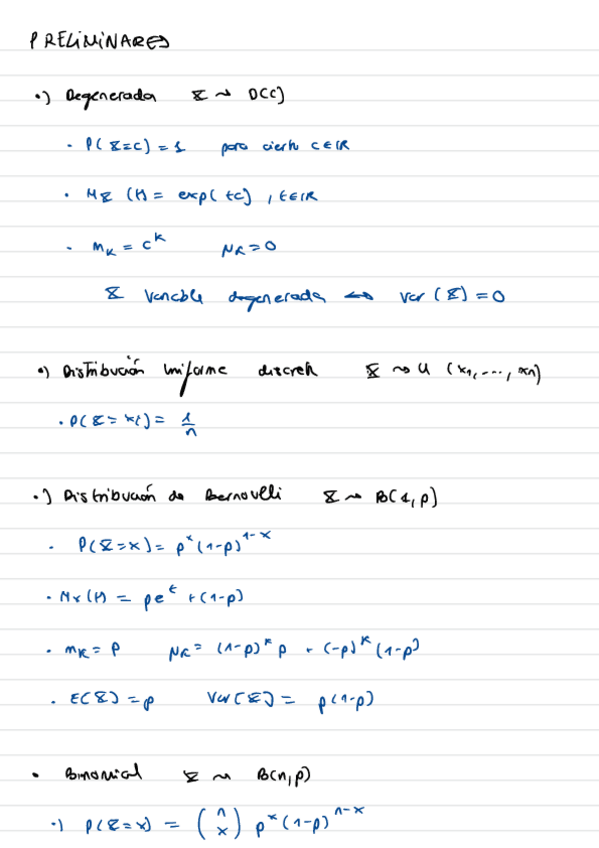 PRELIMINARES
•) Degenerada X ~ D(c)
· P(X=c) = 1 para cierto c∈ℝ
· M_X(t) = exp(tc), t∈ℝ
· m_k = c^k μ_k = 0
X variable degenerada ↔ var(X) = 0
•) Distribución uniforme discreta X ~ U(x₁, ..., xₙ)
· P(X = xᵢ) = 1/n
•) Distribución de Bernoulli X ~ B(1, p)
· P(X=x) = p^x (1-p)^{1-x}
· M_X(t) = pe^t + (1-p)
· m_k = p μ_k = (1-p)^k p + (-p)^k (1-p)
· E(X) = p Var(X) = p(1-p)
• Binomial X ~ B(n, p)
·) P(X=x) = (n x) p^x (1-p)^{n-x}